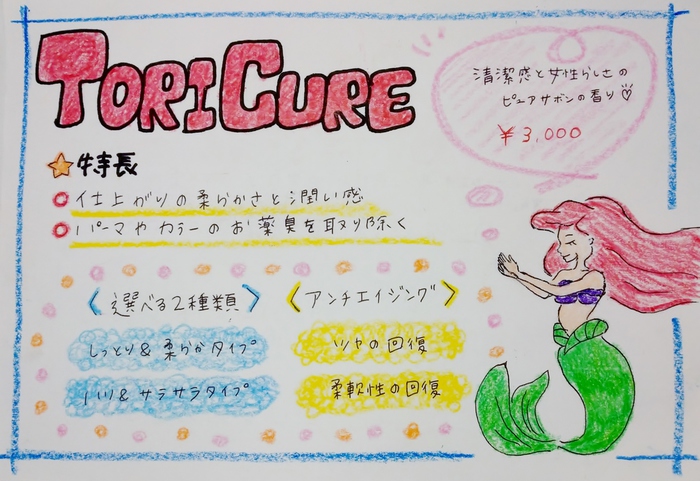 TORICURE
清潔感と女性らしさの
ピュアサボンの香り♡
¥3,000
☆特長
○仕上がりの柔らかさと潤い感
○パーマやカラーのお薬臭を取り除く
〈選べる2種類〉
しっとり&柔らかタイプ
ハリ&サラサラタイプ
〈アンチエイジング〉
ツヤの回復
柔軟性の回復